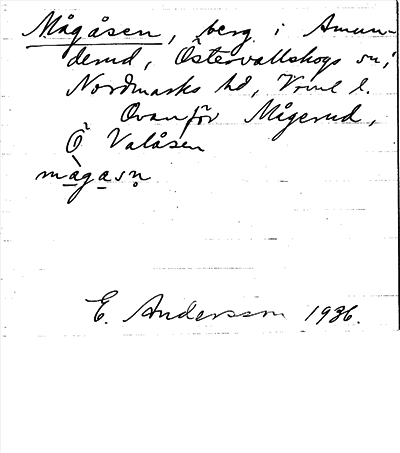 Mågåsen, berg i Amun-
derud, Östervallskogs sn,
Nordmarks hd, Vrml l.
Ovanför Mågerud,
Ö Valåsen
mågasn̥
E. Andersson 1936.